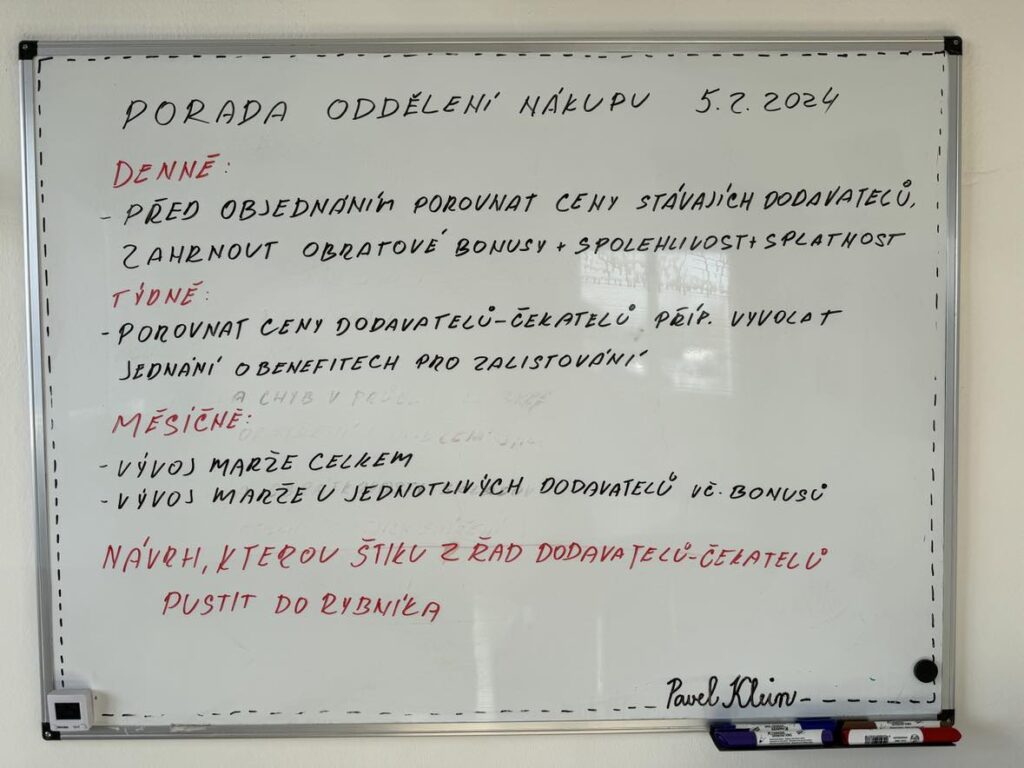 PORADA ODDĚLENÍ NÁKUPU 5.2.2024
DENNĚ:
- PŘED OBJEDNÁNÍM POROVNAT CENY STÁVAJÍCÍCH DODAVATELŮ,
ZAHRNOUT OBRATOVÉ BONUSY + SPOLEHLIVOST + SPLATNOST
TÝDNĚ:
- POROVNAT CENY DODAVATELŮ-ČEKATELŮ PŘÍP. VYVOLAT
JEDNÁNÍ O BENEFITECH PRO ZALISTOVÁNÍ
A CHYB V
MĚSÍČNĚ:
- VÝVOJ MARŽE CELKEM
- VÝVOJ MARŽE U JEDNOTLIVÝCH DODAVATELŮ VČ. BONUSŮ
NÁVRH, KTEROU ŠTIKU Z ŘAD DODAVATELŮ-ČEKATELŮ
PUSTIT DO RYBNÍKA
Pavel Klein